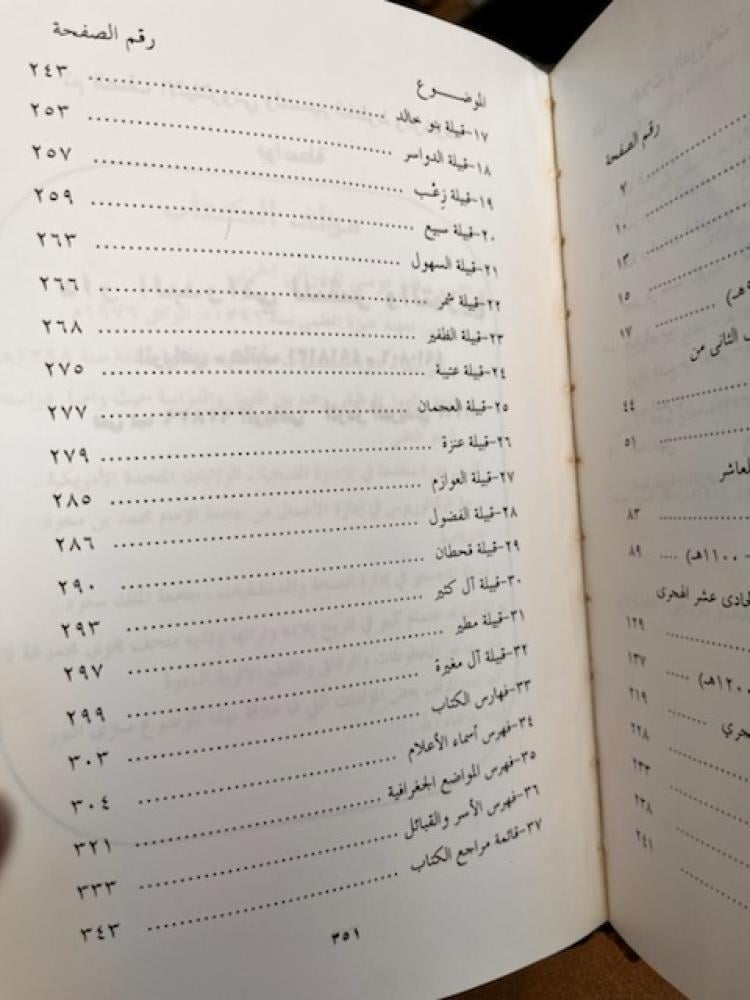 رقم الصفحة
الموضـــوع
١٧-قبيلة بنو خالد .......... ٢٤٣
١٨-قبيلة الدواسر .......... ٢٥٣
١٩-قبيلة زِعْب .......... ٢٥٧
٢٠-قبيلة سبيع .......... ٢٥٩
٢١-قبيلة السهول .......... ٢٦٣
٢٢-قبيلة شمر .......... ٢٦٦
٢٣-قبيلة الظفير .......... ٢٦٨
٢٤-قبيلة عتيبة .......... ٢٧٥
٢٥-قبيلة العجمان .......... ٢٧٧
٢٦-قبيلة عنزة .......... ٢٧٩
٢٧-قبيلة العوازم .......... ٢٨٥
٢٨-قبيلة الفضول .......... ٢٨٦
٢٩-قبيلة قحطان .......... ٢٩٠
٣٠-قبيلة آل كثير .......... ٢٩٣
٣١-قبيلة مطير .......... ٢٩٧
٣٢-قبيلة آل مغيرة .......... ٢٩٩
٣٣-فهارس الكتاب .......... ٣٠٣
٣٤-فهرس أسماء الأعلام .......... ٣٠٤
٣٥-فهرس المواضع الجغرافية .......... ٣٢١
٣٦-فهرس الأسر والقبائل .......... ٣٣٣
٣٧-قائمة مراجع الكتاب .......... ٣٤٣
٣٥١
رقم الصفحة
٧
١٠
١٣
١٥
١٧
ـف الثانى من
٤٤
٥١
العاشر
٨٣
- ١١٠٠هـ) .... ٨٩
لحادى عشر الهجرى
١٢٩
١٣٧
١٢٠٠هـ) ....
هجري ........ ٢١٩
٢٢٨
٢٣٣
٢٣٨
٢٤١